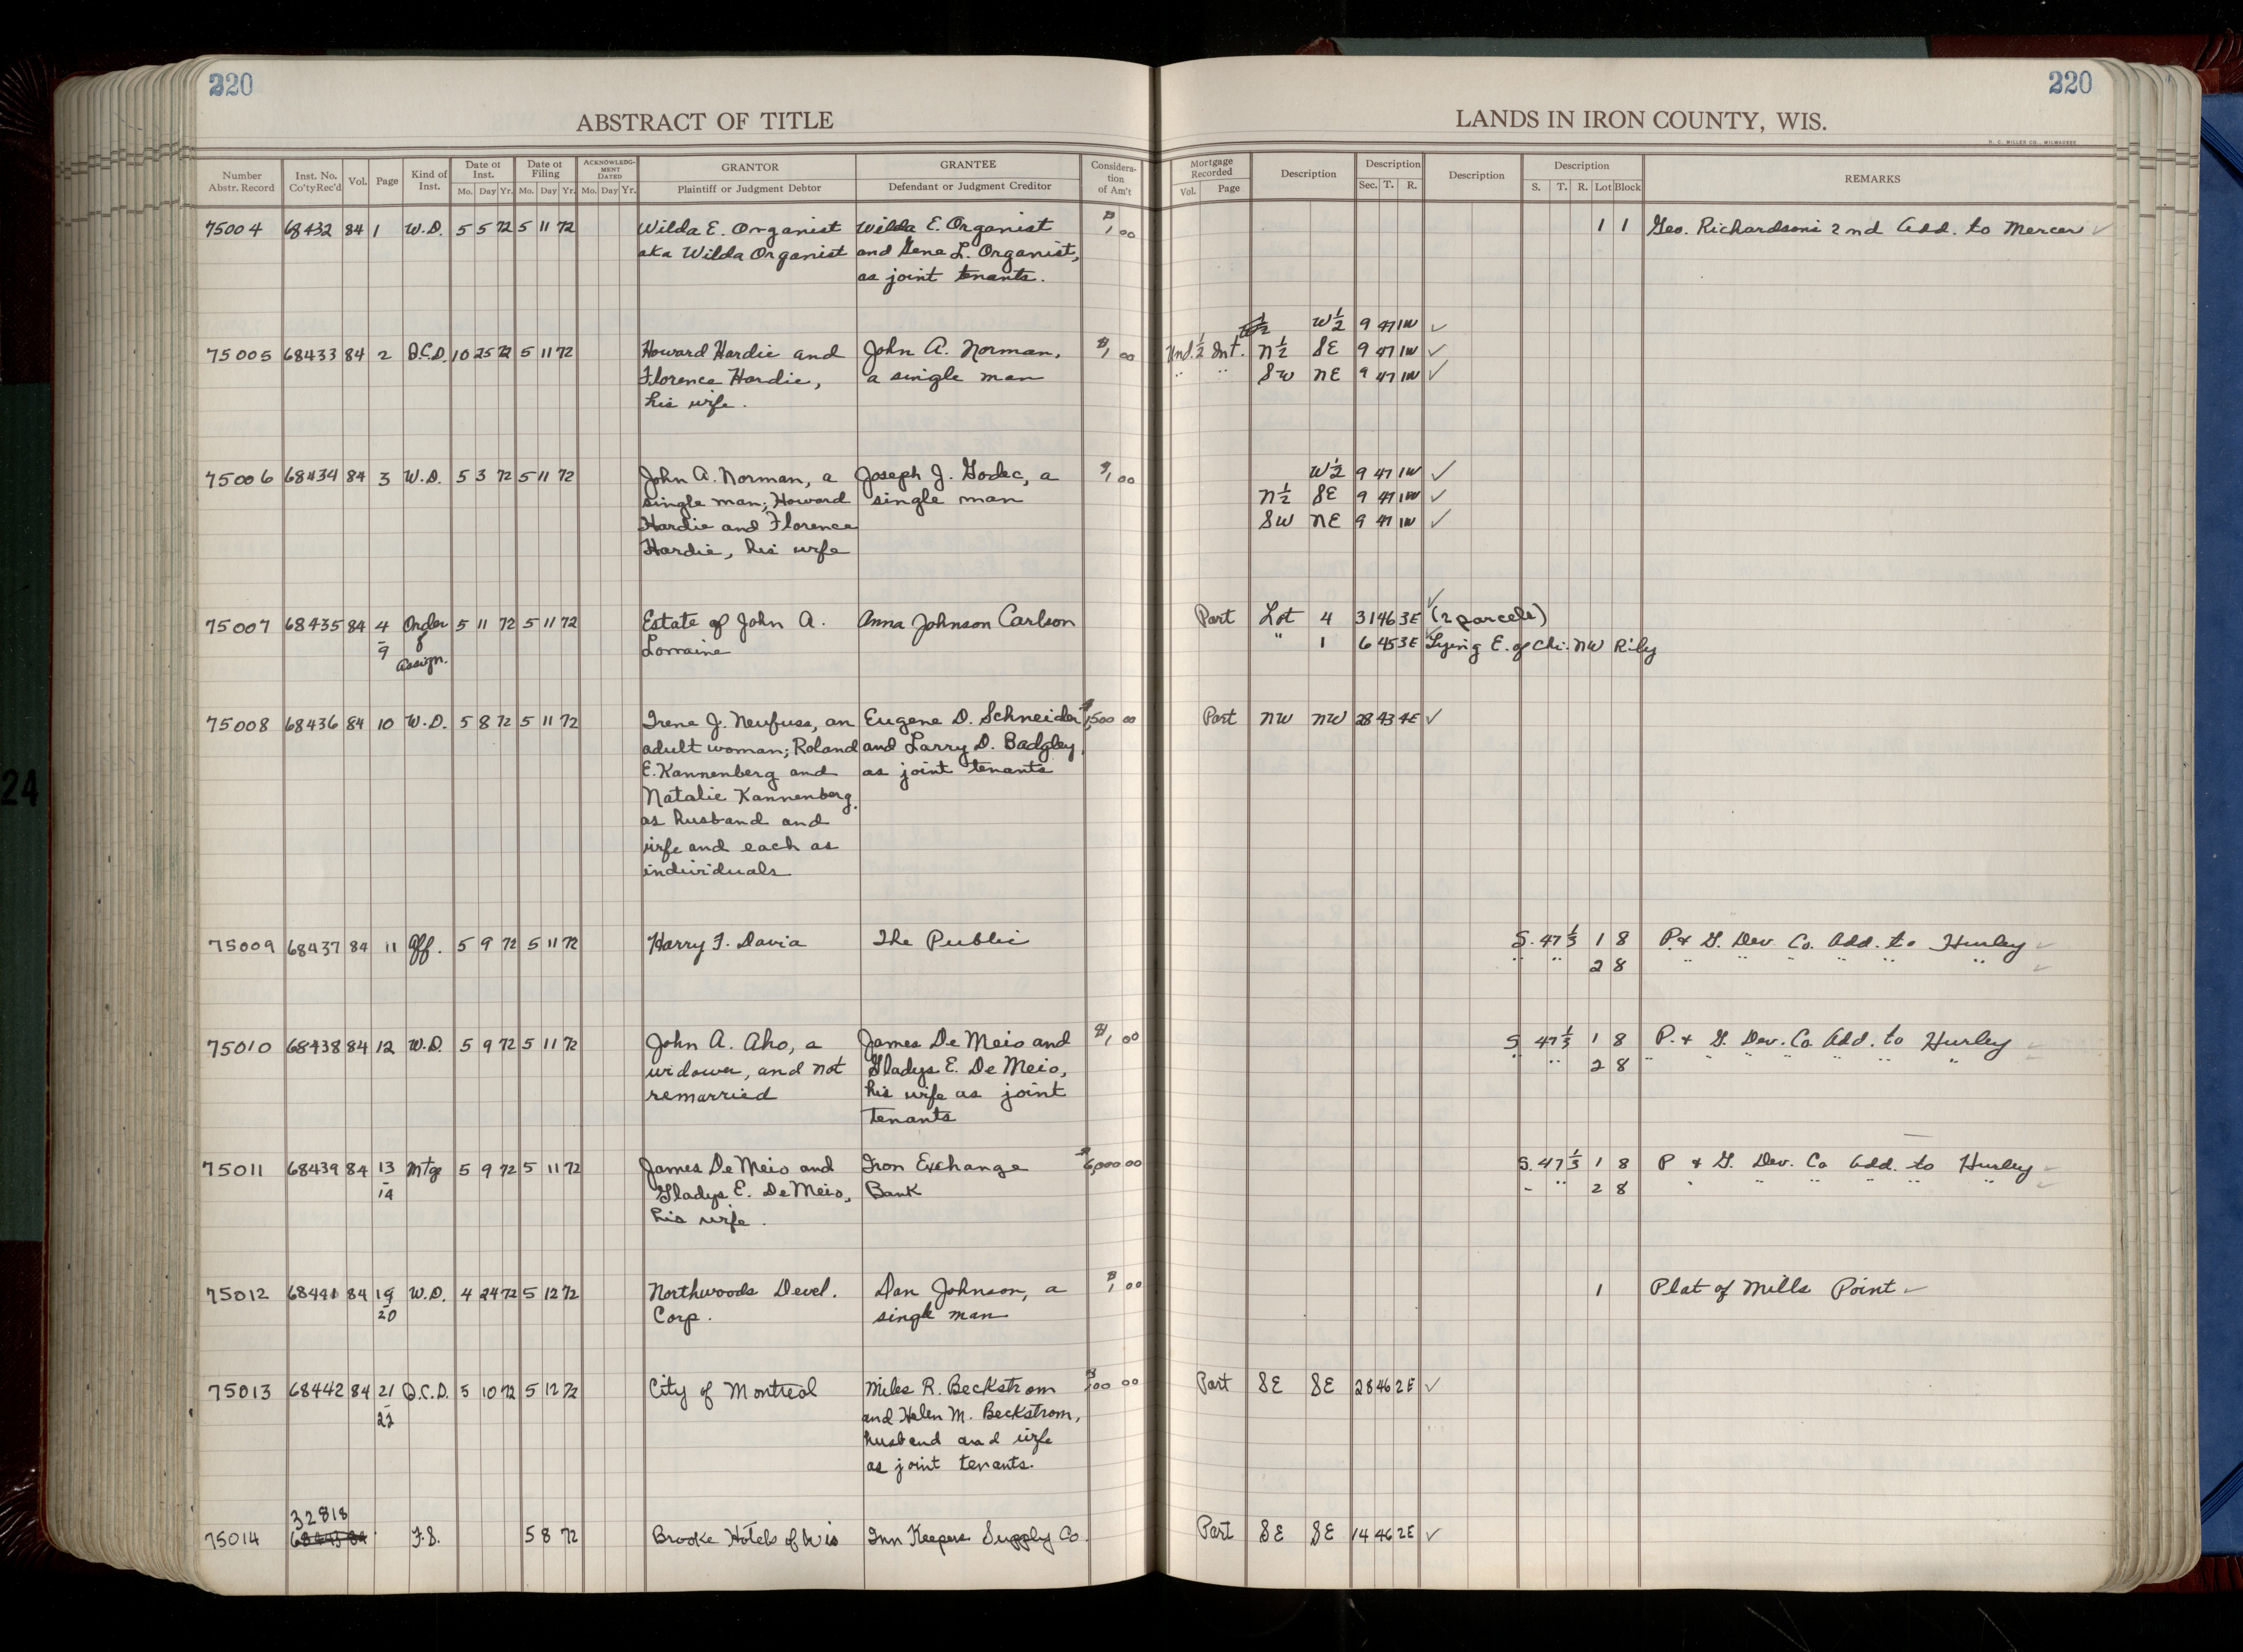 220
220
ABSTRACT OF TITLE
LANDS IN IRON COUNTY, WIS.
H. C. MILLER CO., MILWAUKEE
Number Abstr. Record | Inst. No. Co'ty Rec'd | Vol. | Page | Kind of Inst. | Date of Inst. Mo. Day Yr. | Date of Filing Mo. Day Yr. | ACKNOWLEDGMENT DATED Mo. Day Yr. | GRANTOR Plaintiff or Judgment Debtor | GRANTEE Defendant or Judgment Creditor | Consideration of Am't | Mortgage Recorded Vol. Page | Description | Description Sec. T. R. | Description | Description S. T. R. Lot Block | REMARKS
75004 68432 84 1 W.D. 5 5 72 5 11 72 Wilda E. Organist Wilda E. Organist $1,00 1 1 Geo. Richardson's 2nd Add. to Mercer ✓
aka Wilda Organist and Gene L. Organist,
as joint tenants.
W½ 9 47 1W ✓
75005 68433 84 2 Q.C.D. 10 25 72 5 11 72 Howard Hardie and John A. Norman, $1,00 Und. ½ Int. N½ SE 9 47 1W ✓
Florence Hardie, a single man " " SW NE 9 47 1W ✓
his wife.
75006 68434 84 3 W.D. 5 3 72 5 11 72 John A. Norman, a Joseph J. Godec, a $1,00 W½ 9 47 1W ✓
single man; Howard single man N½ SE 9 47 1W ✓
Hardie and Florence SW NE 9 47 1W ✓
Hardie, his wife
75007 68435 84 4 Order 5 11 72 5 11 72 Estate of John A. Anna Johnson Carlson Part Lot 4 31 46 3E ✓ (2 parcels)
- 9 of Assign. Lorraine " 1 6 45 3E Lying E. of Chi. NW R'ly
75008 68436 84 10 W.D. 5 8 72 5 11 72 Irene J. Neufuss, an Eugene D. Schneider $1,500 00 Part NW NW 28 43 4E ✓
adult woman; Roland and Larry D. Badgley,
E. Kannenberg and as joint tenants
Natalie Kannenberg,
as husband and
wife and each as
individuals
75009 68437 84 11 Aff. 5 9 72 5 11 72 Harry F. Davia The Public S. 47⅓ 1 8 P. & G. Dev. Co. Add. to Hurley ✓
" " 2 8 " " " " " " ✓
75010 68438 84 12 W.D. 5 9 72 5 11 72 John A. Aho, a James De Meio and $1,00 S 47⅓ 1 8 P. & G. Dev. Co. Add. to Hurley ✓
widower, and not Gladys E. De Meio, " " 2 8 " " " " " "
remarried his wife as joint
tenants
75011 68439 84 13 Mtg 5 9 72 5 11 72 James De Meio and Iron Exchange $6,000 00 S. 47⅓ 1 8 P & G. Dev. Co Add. to Hurley ✓
- 14 Gladys E. De Meio, Bank " " 2 8 " " " " " " ✓
his wife.
75012 68441 84 19 W.D. 4 24 72 5 12 72 Northwoods Devel. Dan Johnson, a $1,00 1 Plat of Mills Point ✓
- 20 Corp. single man
75013 68442 84 21 Q.C.D. 5 10 72 5 12 72 City of Montreal Miles R. Beckstrom $100 00 Part SE SE 28 46 2E ✓
- and Helen M. Beckstrom,
husband and wife
as joint tenants.
32818
75014 68443 84 F.S. 5 8 72 Brooke Hotels of Wis Inn Keepers Supply Co. Part SE SE 14 46 2E ✓
24